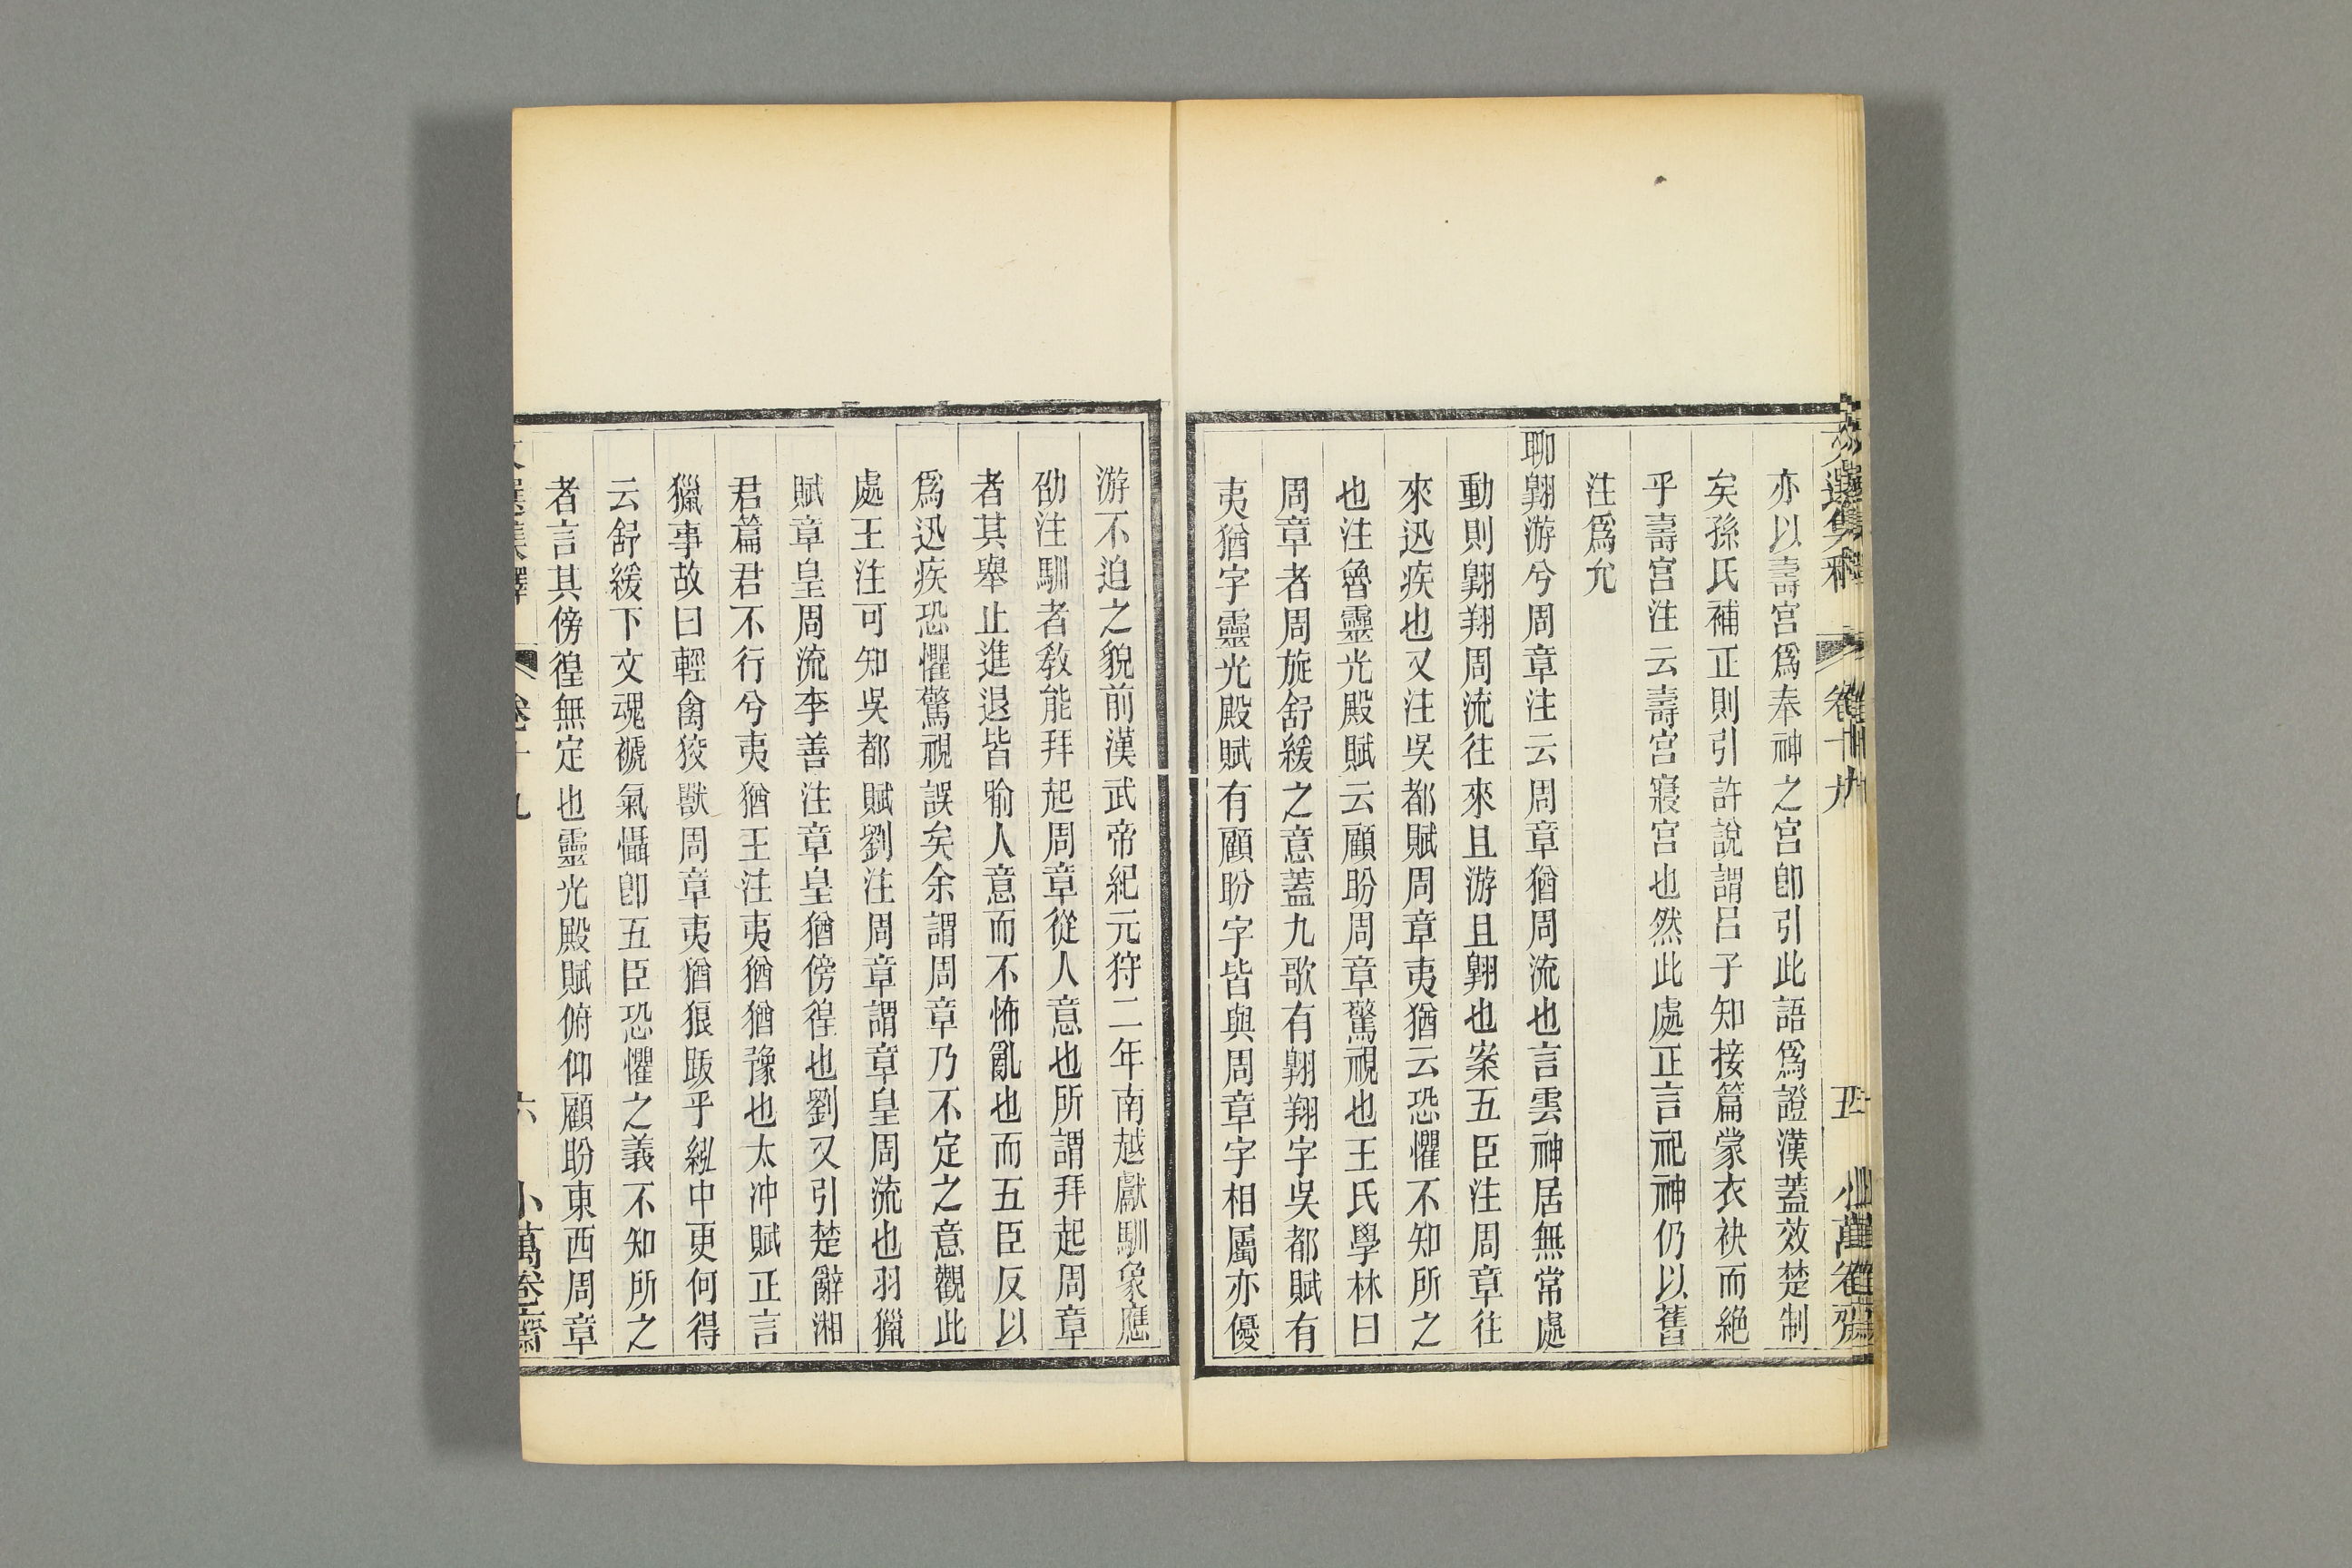 亦以壽宮爲奉神之宮卽引此語爲證漢蓋效楚制
矣孫氏補正則引許說謂呂子知接篇蒙衣袂而絕
乎壽宮注云壽宮寢宮也然此處正言祀神仍以舊
注爲允
聊翺游兮周章注云周章猶周流也言雲神居無常處
動則翺翔周流往來且游且翺也案五臣注周章往
來迅疾也又注吳都賦周章夷猶云恐懼不知所之
也注魯靈光殿賦云顧盼周章驚視也王氏學林曰
周章者周旋舒緩之意蓋九歌有翺翔字吳都賦有
夷猶字靈光殿賦有顧盼字皆與周章字相屬亦優
游不迫之貌前漢武帝紀元狩二年南越獻馴象應
劭注馴者敎能拜起周章從人意也所謂拜起周章
者其舉止進退皆喻人意而不怖亂也而五臣反以
爲迅疾恐懼驚視誤矣余謂周章乃不定之意觀此
處王注可知吳都賦劉注周章謂章皇周流也羽獵
賦章皇周流李善注章皇猶傍徨也劉又引楚辭湘
君篇君不行兮夷猶王注夷猶猶豫也太冲賦正言
獵事故曰輕禽狡獸周章夷猶狼跋乎紭中更何得
云舒緩下文魂褫氣懾卽五臣恐懼之義不知所之
者言其傍徨無定也靈光殿賦俯仰顧盼東西周章
卷十九
六
小萬卷齋